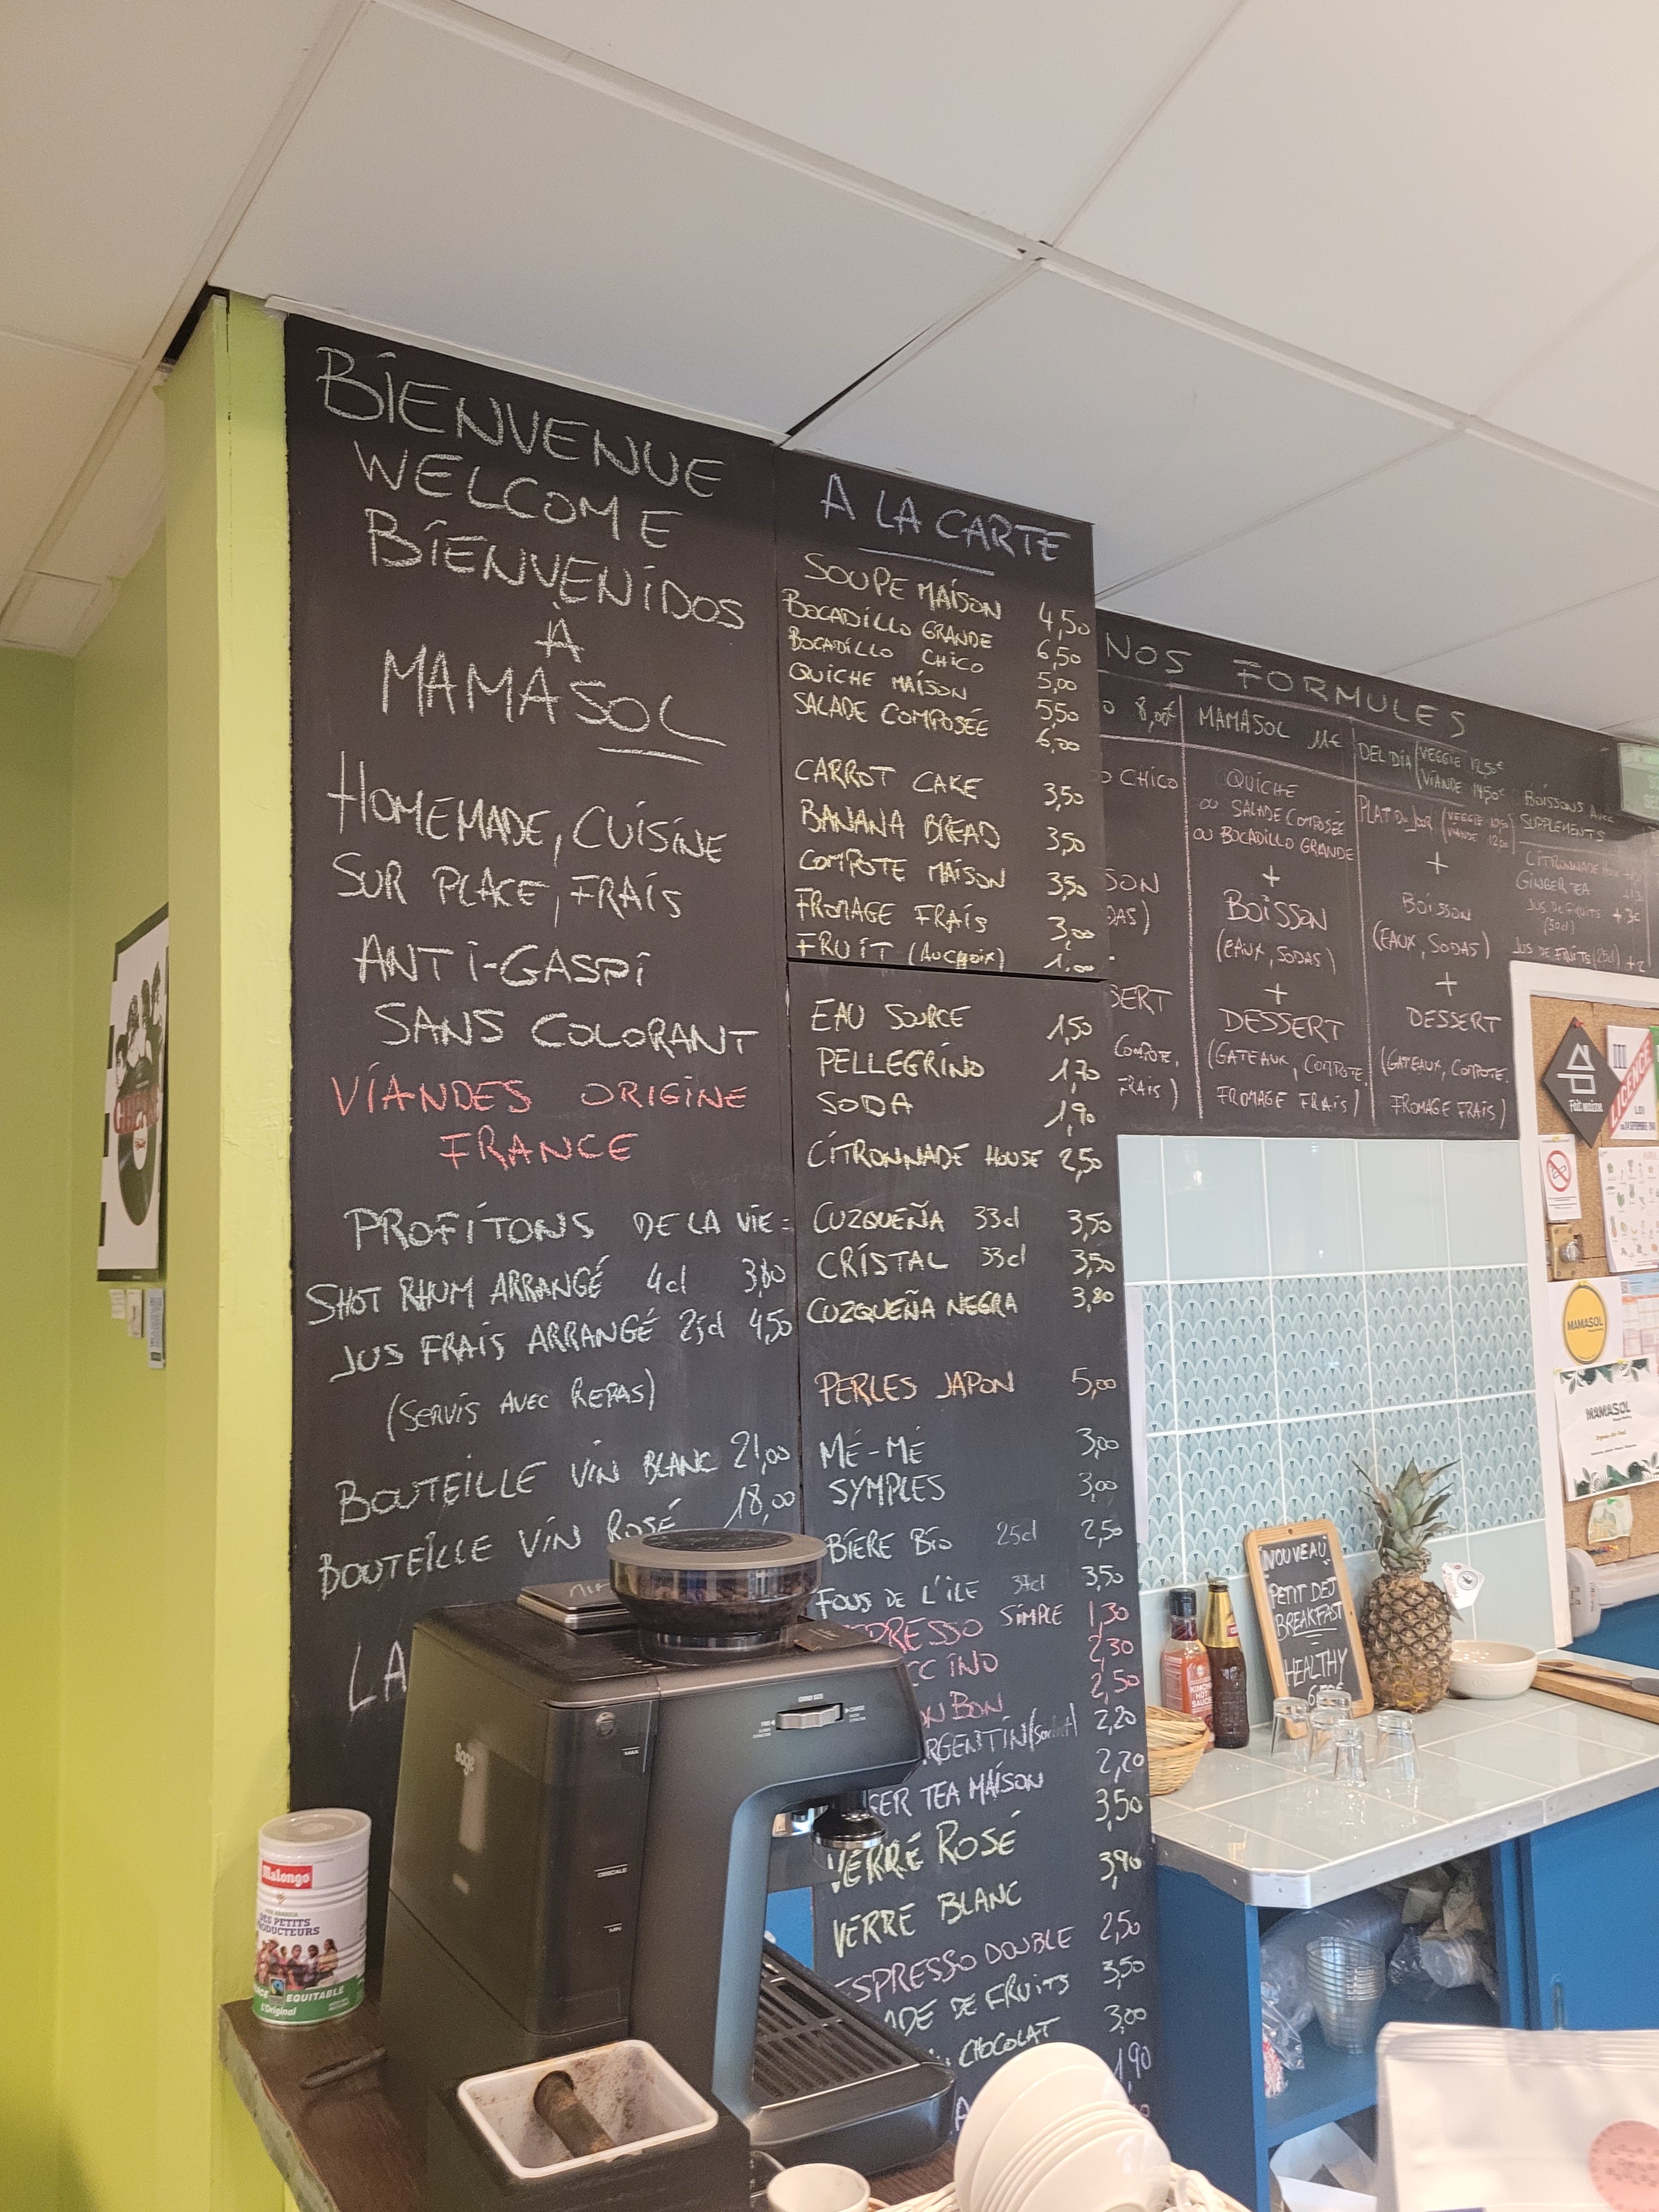 BIENVENUE
WELCOME
BIENVENIDOS
A
MAMASOL
HOMEMADE, CUISINE
SUR PLACE, FRAIS
ANTI-GASPI
SANS COLORANT
VIANDES ORIGINE
FRANCE
PROFITONS DE LA VIE:
SHOT RHUM ARRANGÉ 4cl 3,80
JUS FRAIS ARRANGÉ 25cl 4,50
(SERVIS AVEC REPAS)
BOUTEILLE VIN BLANC 21,00
BOUTEILLE VIN ROSÉ 18,00
LA
A LA CARTE
SOUPE MAISON 4,50
BOCADILLO GRANDE 6,50
BOCADILLO CHICO 5,00
QUICHE MAISON 5,50
SALADE COMPOSÉE 6,00
CARROT CAKE 3,50
BANANA BREAD 3,50
COMPOTE MAISON 3,50
FROMAGE FRAIS 3,00
FRUIT (AU CHOIX) 1,00
EAU SOURCE 1,50
PELLEGRINO 1,70
SODA 1,90
CITRONNADE HOUSE 2,50
CUZQUEÑA 33cl 3,50
CRISTAL 33cl 3,50
CUZQUEÑA NEGRA 3,80
PERLES JAPON 5,00
MÉ-MÉ 3,00
SYMPLES 3,00
BIÈRE BIO 25cl 2,50
FOUS DE L'ILE 37cl 3,50
PRESSO SIMPLE 1,30
CCINO 2,30
ON BON 2,50
RGENTIN (sachet) 2,20
GER TEA MAISON 2,20
VERRE ROSÉ 3,50
VERRE BLANC 3,90
ESPRESSO DOUBLE 2,50
ADE DE FRUITS 3,50
CHOCOLAT 3,00
1,90
NOS FORMULES
O 8,00€
O CHICO
SON
DAS)
SERT
COMPOTE,
FRAIS)
MAMASOL 11€
QUICHE
OU SALADE COMPOSÉE
OU BOCADILLO GRANDE
+
BOISSON
(EAUX, SODAS)
+
DESSERT
(GATEAUX, COMPOTE,
FROMAGE FRAIS)
DEL DIA (VEGGIE 12,5€
VIANDE 14,50€
PLAT DU JOUR (VEGGIE 10,50
VIANDE 12,00)
+
BOISSON
(EAUX, SODAS)
+
DESSERT
(GATEAUX, COMPOTE,
FROMAGE FRAIS)
BOISSONS AVEC
SUPPLEMENTS
CITRONNADE
GINGER TEA
JUS DE FRUITS +3€
(50cl)
JUS DE FRUITS (25cl) +2
Fait maison
LICENCE
III
MAMASOL
MAMASOL
NOUVEAU
PETIT DEJ
BREAKFAST
HEALTHY
KIMCHI
HOT
SAUCE
Sage
MAX
DESCALE
MIN
GRIND SIZE
Malongo
DES PETITS
PRODUCTEURS
EQUITABLE
L'Original